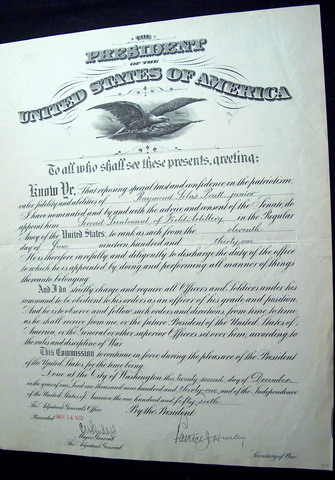 THE
PRESIDENT
OF THE
UNITED STATES OF AMERICA
To all who shall see these presents, greeting:
Know Ye, That reposing special trust and confidence in the patriotism,
valor, fidelity and abilities of Raymond Silas Pratt, junior
I have nominated and by and with the advice and consent of the Senate, do
appoint him Second Lieutenant of Field Artillery in the Regular
Army of the United States: to rank as such from the eleventh
day of June nineteen hundred and thirty-one
He is therefore carefully and diligently to discharge the duty of the office
to which he is appointed by doing and performing all manner of things
thereunto belonging.
And I do strictly charge and require all Officers and Soldiers under his
command to be obedient to his orders as an officer of his grade and position.
And he is to observe and follow such orders and directions, from time to time,
as he shall receive from me, or the future President of the United States of
America, or the General or other superior Officers set over him, according to
the rules and discipline of War.
This Commission to continue in force during the pleasure of the President
of the United States for the time being.
Done at the City of Washington this twenty second day of December
in the year of our Lord one thousand nine hundred and thirty-one and of the Independence
of the United States of America the one hundred and fifty-sixth
By the President:
The Adjutant General's Office
Recorded
Major General
The Adjutant General.
Patrick J. Hurley
Secretary of War